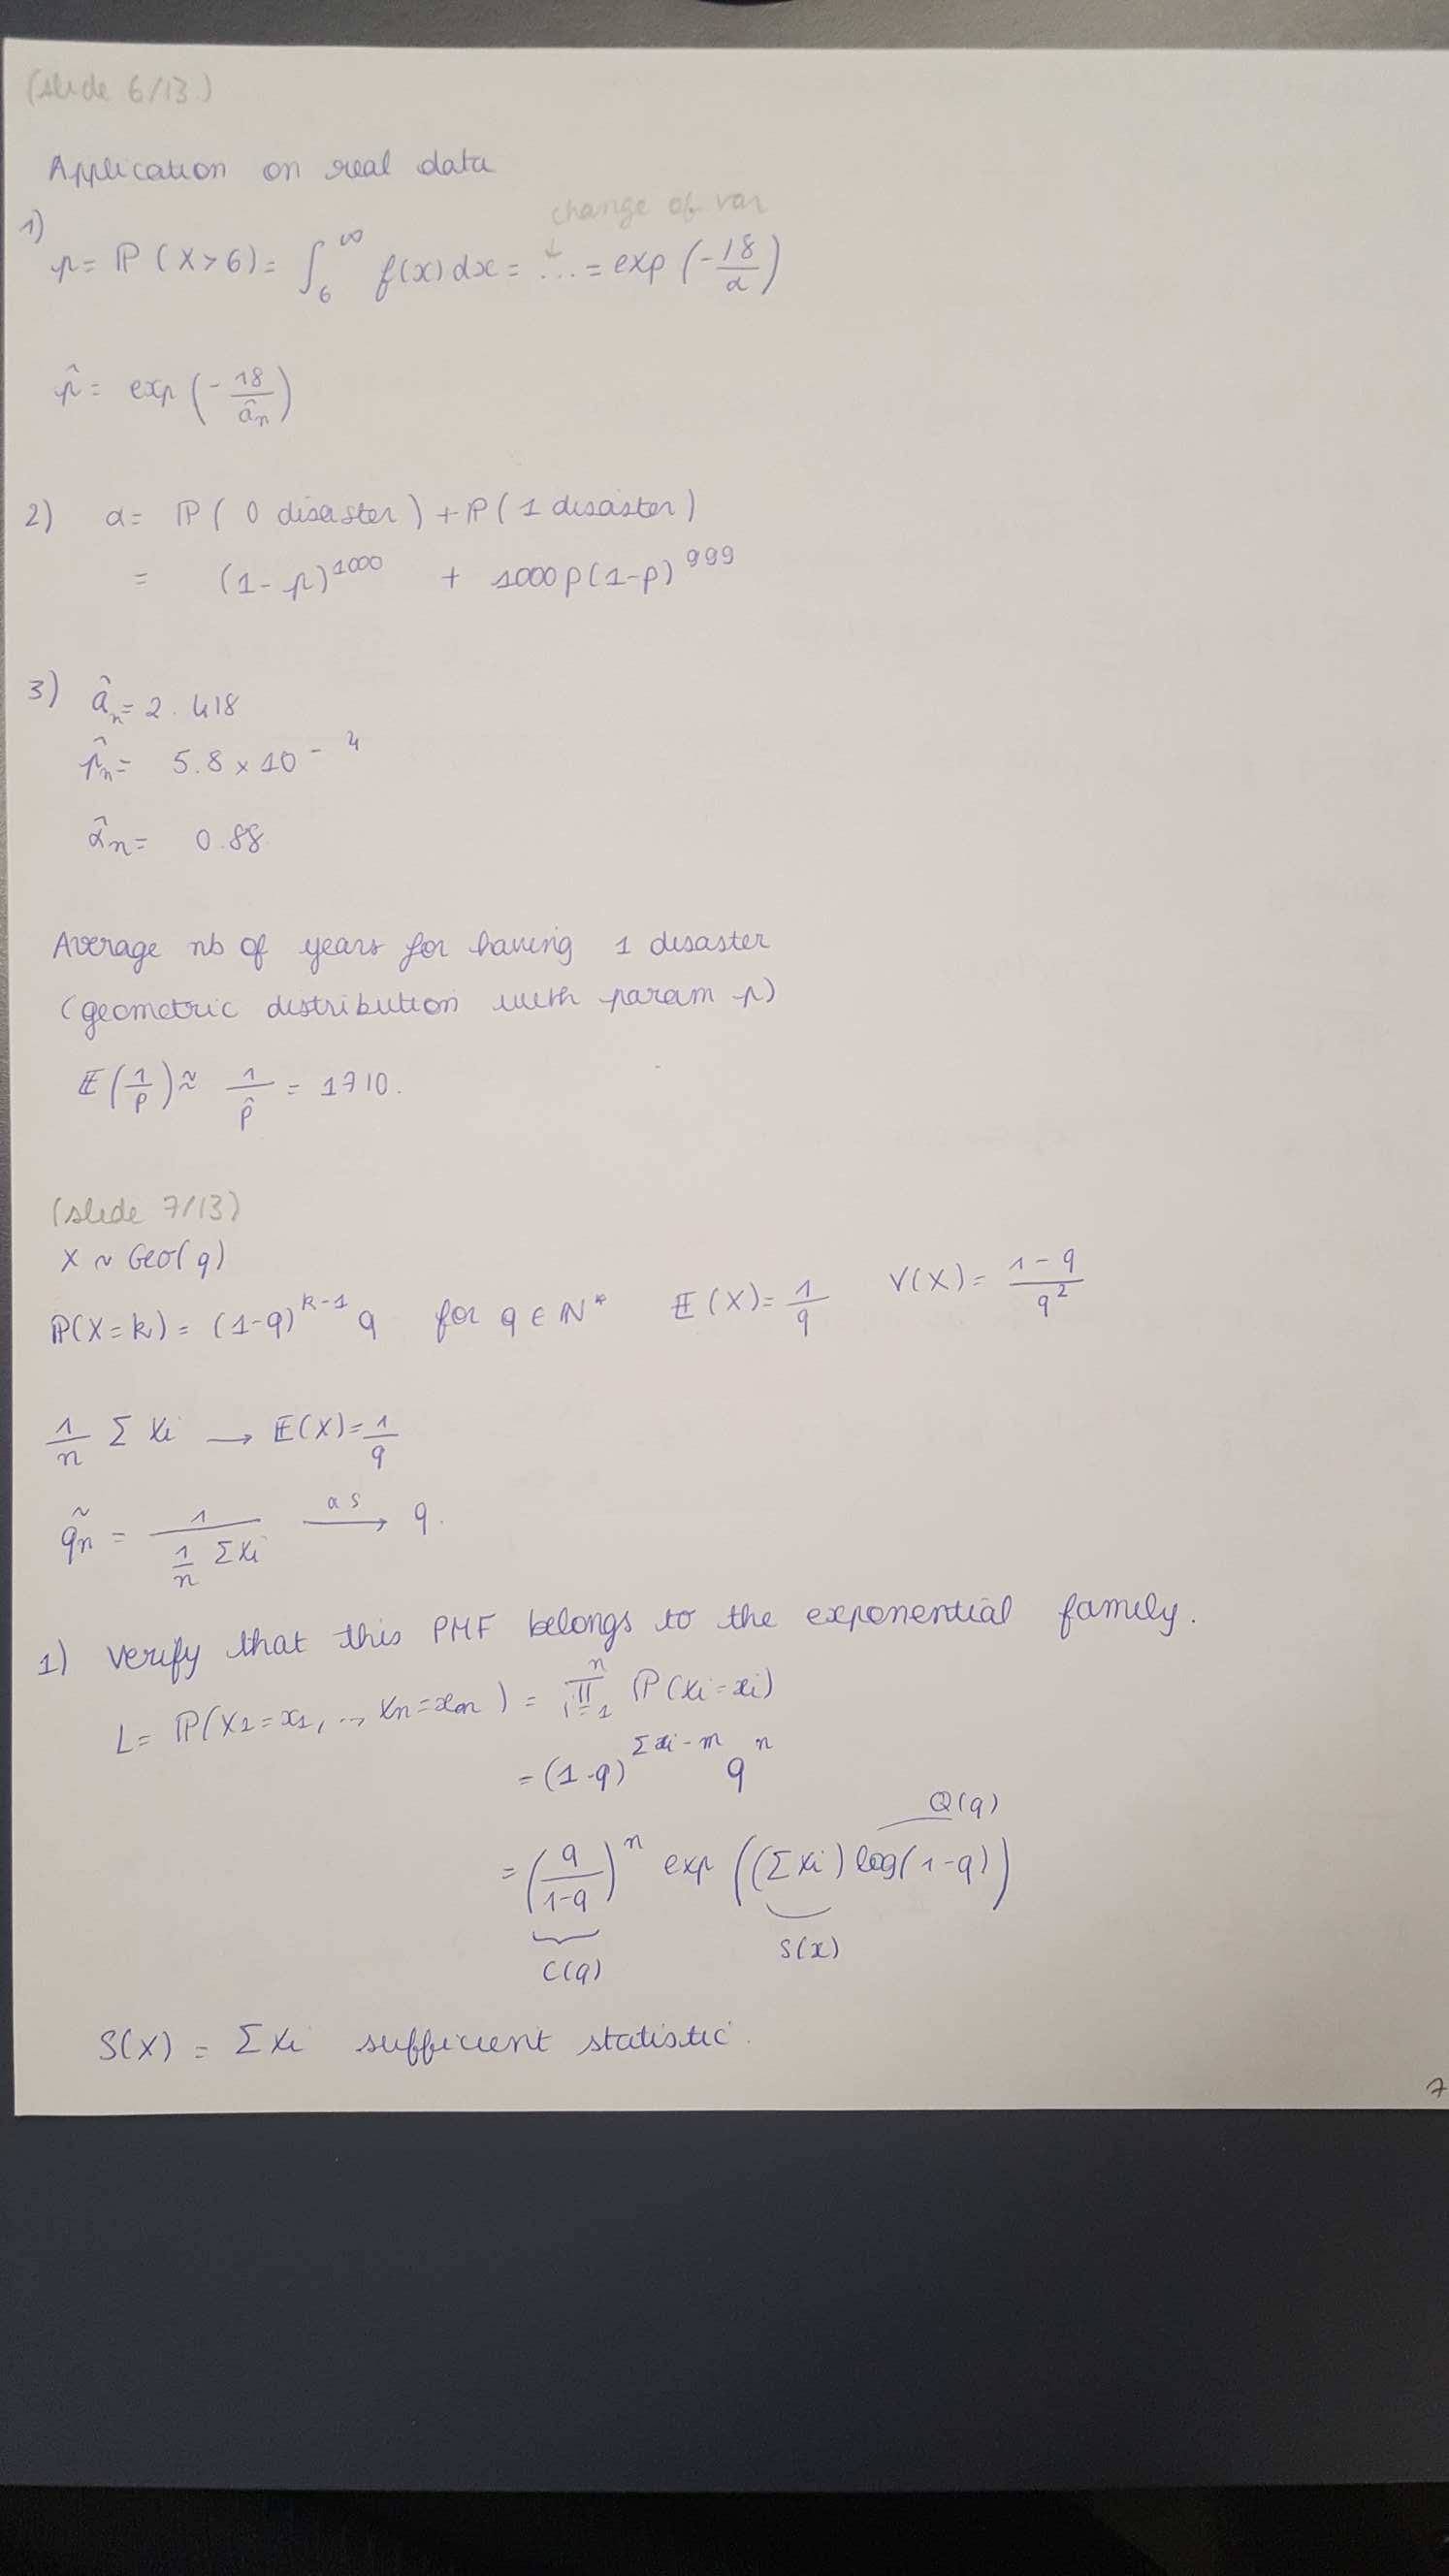 (slide 6/13)
Application on real data
change of var
↓
1) p = ℙ(X>6) = ∫_6^∞ f(x) dx = ... = exp(-18/a)
p̂ = exp(-18/â_n)
2) α = ℙ(0 disaster) + ℙ(1 disaster)
= (1-p)^1000 + 1000p(1-p)^999
3) â_n = 2.418
p̂_n = 5.8 × 10^-4
α̂_n = 0.88
Average nb of years for having 1 disaster
(geometric distribution with param p)
𝔼(1/p) ≈ 1/p̂ = 1710.
(slide 7/13)
X ~ Geo(q)
ℙ(X=k) = (1-q)^(k-1) q for q ∈ ℕ* 𝔼(X) = 1/q V(X) = (1-q)/q^2
1/n Σ Xi → 𝔼(X) = 1/q
q̃_n = 1/(1/n Σ Xi) →^as q.
1) Verify that this PMF belongs to the exponential family.
L = ℙ(X1=x1, .., Xn=xn) = ∏_{i=1}^n ℙ(Xi=xi)
= (1-q)^(Σxi-n) q^n
Q(q)
= (q/(1-q))^n exp((Σ Xi) log(1-q))
C(q) S(x)
S(X) = Σ Xi sufficient statistic.
7